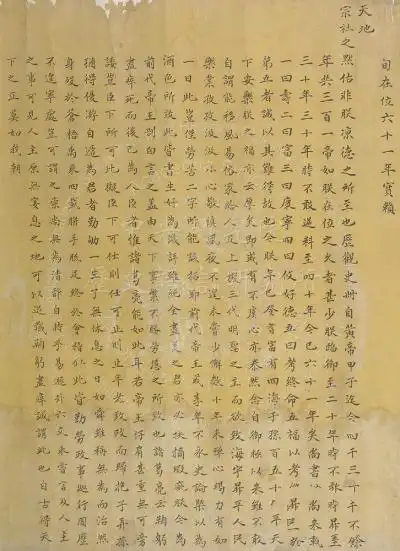 旬在位六十一年實賴
天地
宗社之默佑非朕涼德之所至也歷觀史冊自黃帝甲子迄今四千三百五十餘
年共三百一帝如朕在位之久者甚少朕臨御至二十年時不敢逆料至
三十年三十年時不敢逆料至四十年今已六十一年矣尚書洪範所載
一曰壽二曰富三曰康寧四曰攸好德五曰考終命五福以考終命列於
第五者誠以其難得故也今朕年已登耆富有四海子孫百五十餘人天
下安樂朕之福亦云厚矣即或有不虞心亦泰然念自御極以來雖不敢
自謂能移風易俗家給人足上擬三代明聖之主而欲致海宇昇平人民
樂業孜孜汲汲小心敬慎夙夜不遑未嘗少懈數十年來殫心竭力有如
一日此豈僅勞苦二字所能該括耶前代帝王或享年不永史論概以為
酒色所致此皆書生好為譏評雖純全盡美之君亦必抉摘瑕疵朕今為
前代帝王剖白言之蓋由天下事繁不勝勞憊之所致也諸葛亮云鞠躬
盡瘁死而後已為人臣者惟諸葛亮能如此耳若帝王仔肩甚重無可旁
諉豈臣下所可比擬臣下可仕則仕可止則止年老致政而歸抱子弄孫
猶得優游自適為君者勤劬一生了無休息之日如舜雖稱無為而治然
身歿於蒼梧禹乘四載胼手胝足終於會稽似此皆勤勞政事巡行周歷
不遑寧處豈可謂之崇尚無為清靜自持乎易遯卦六爻未嘗言及人主
之事可見人主原無宴息之地可以退藏鞠躬盡瘁誠謂此也自古得天
下之正莫如我朝